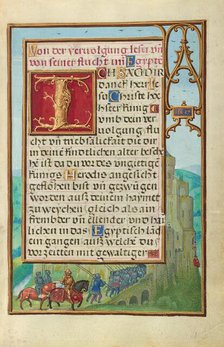 Von der vervolgung Jesu vn
von seiner flucht inn Egypte
ICH SAG DIR
danck herr Je
sa Christe ho
chster künig
vmb dein ver
volgung flu
cht vnd
in deiner kindtlichen alter besche
hen ist da du vor des
künigs Herodis angesicht
geflohen bist vn gezwungen
worden auss deinem
zu weychen gleich als ain
frembder vn ellender vnd haim
lichen in das Egyptisch land
gangen auss welche du
vorzeitten mit gewaltiger